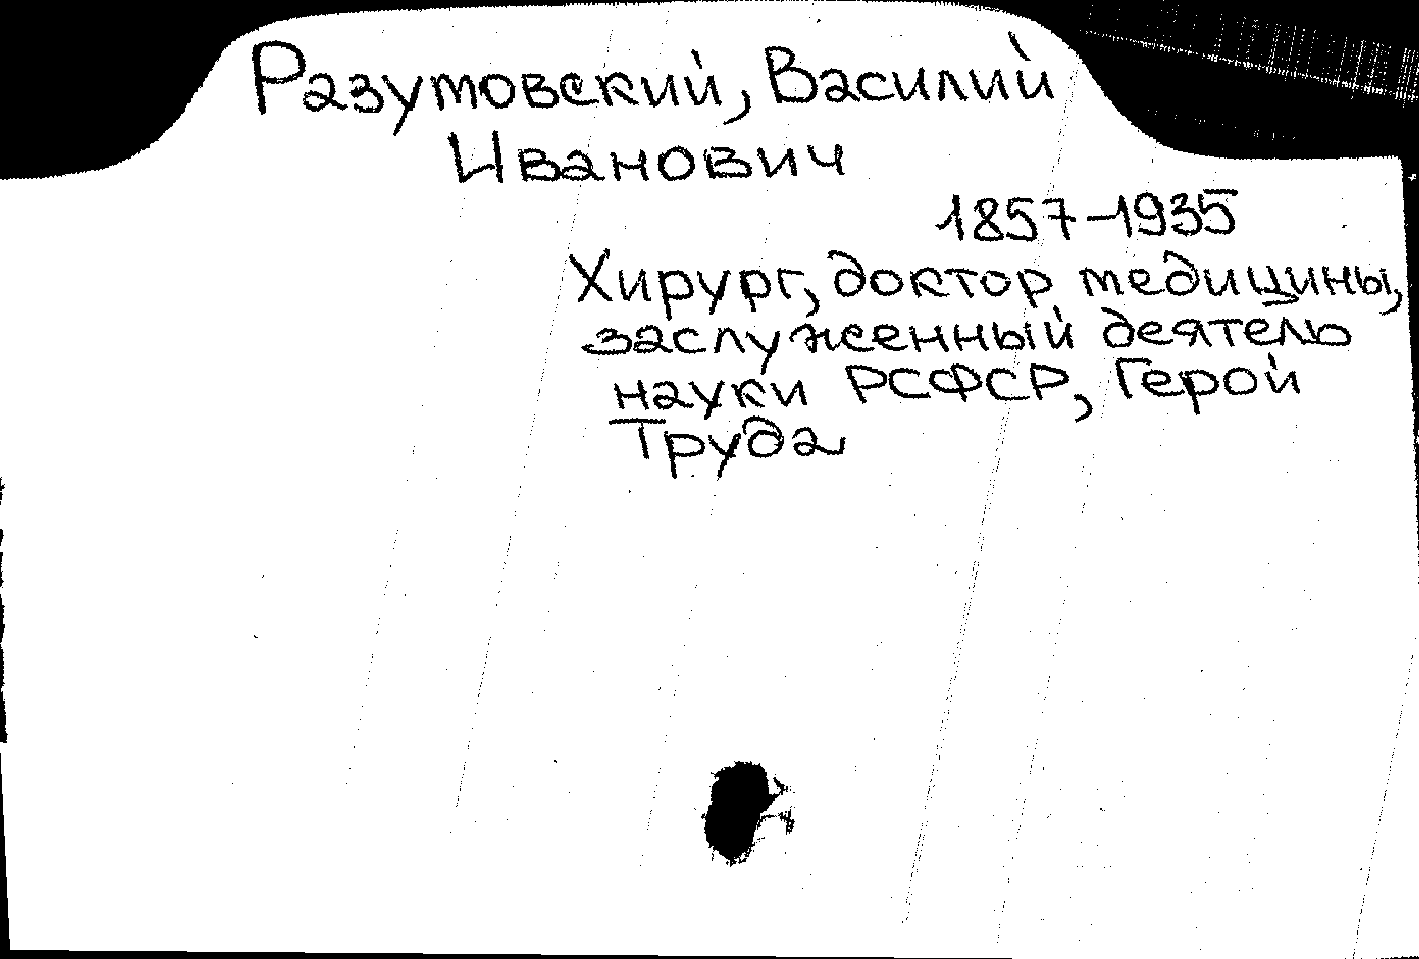 Разумовский, Василий
Иванович
1857-1935
Хирург, доктор медицины,
заслуженный деятель
науки РСФСР, Герой
Труда